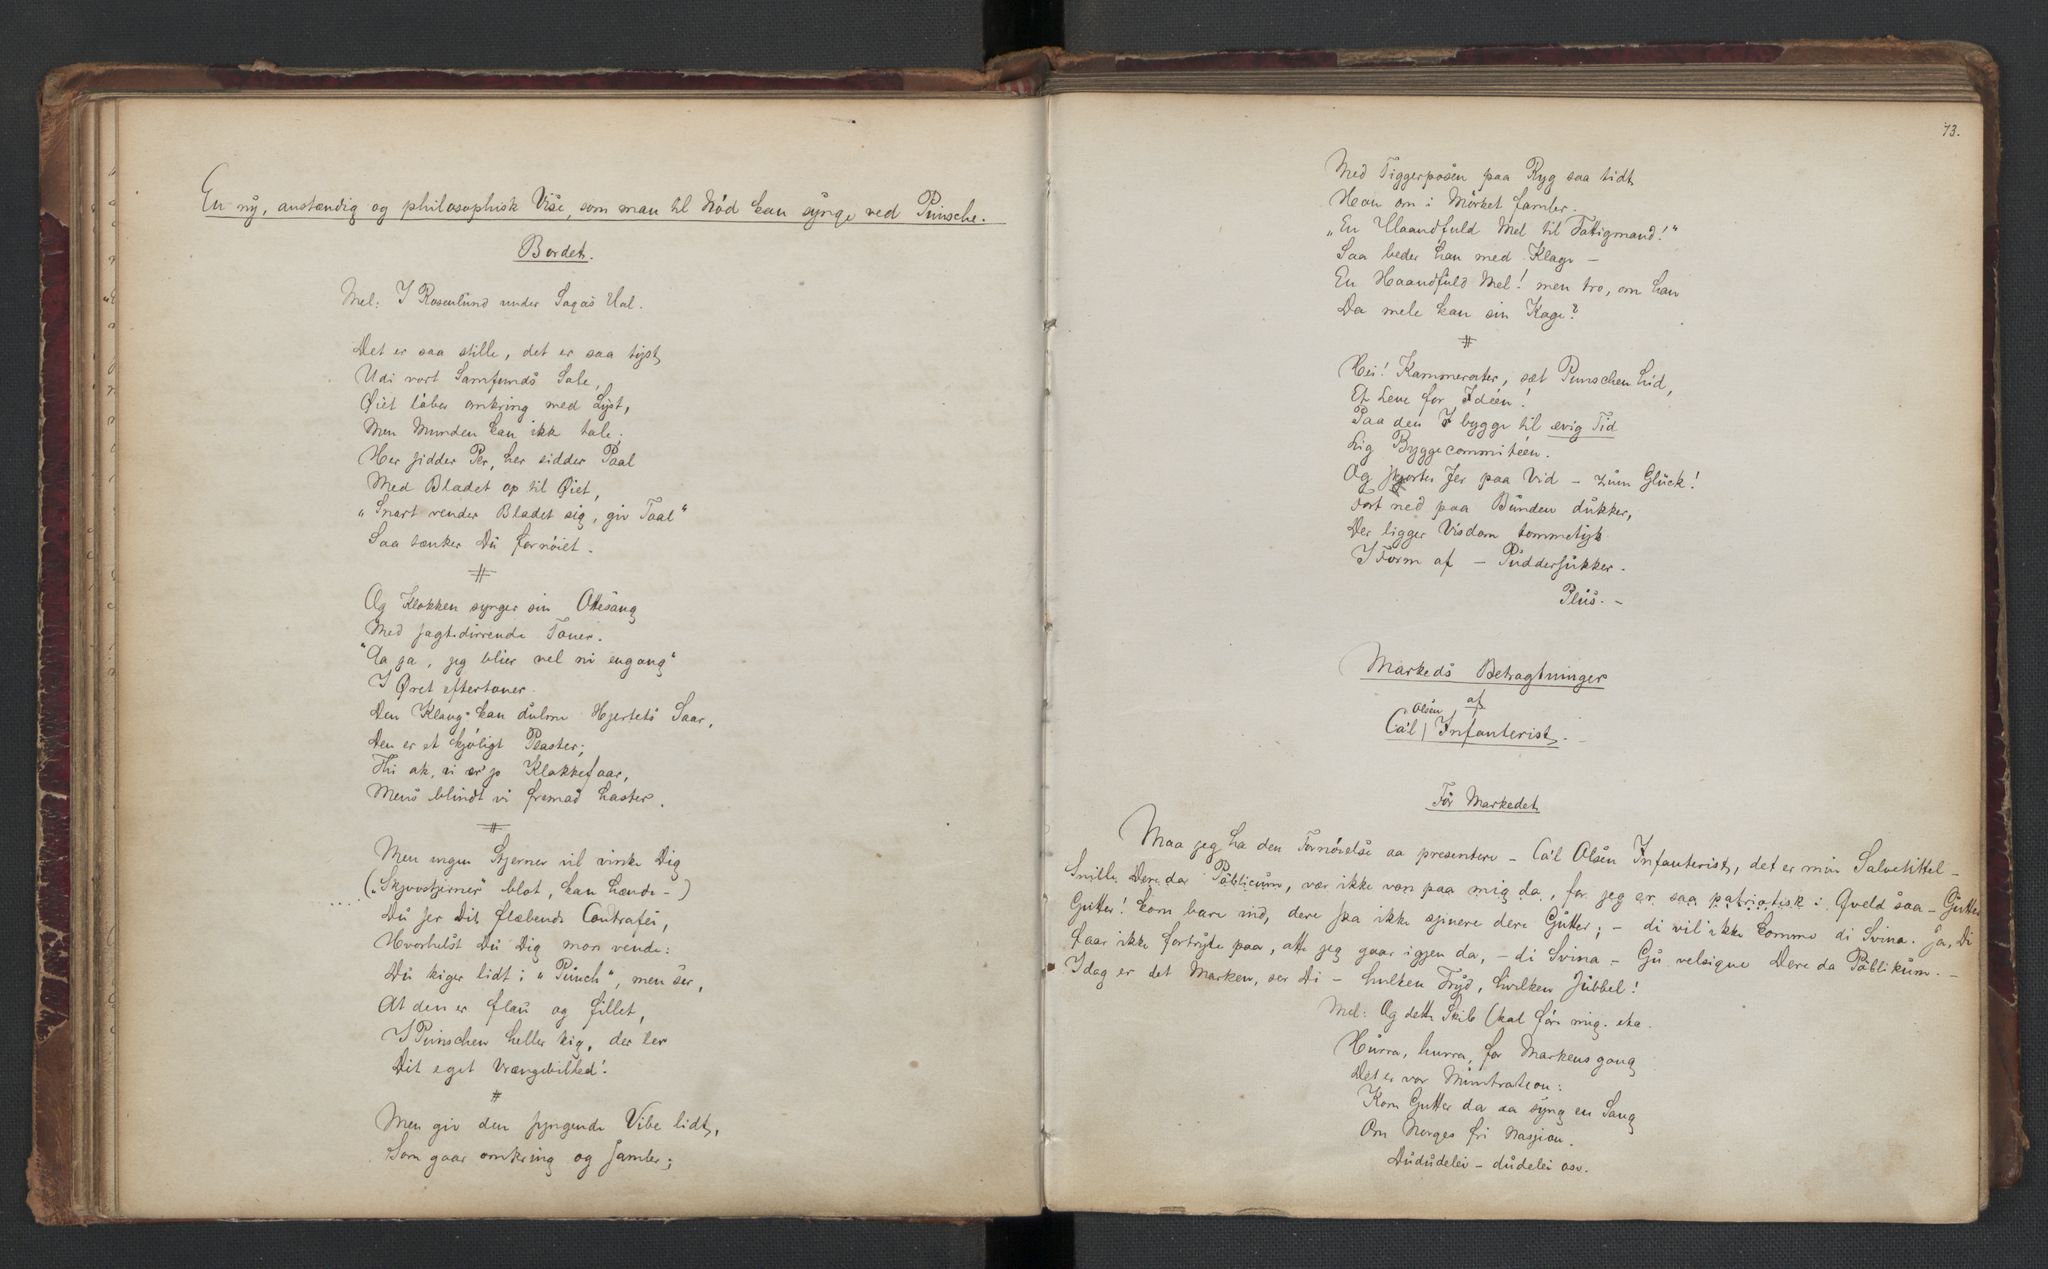 En ny, anstændig og philosophisk Vise, som man til Nød kan synge ved Punsche.
Bordet.
Mel: I Rosenlund under Sagas Hal.
Det er saa stille, det er saa tyst
Udi vort Samfunds Sale,
Øiet løber omkring med Lyst,
Men Munden kan ikke tale;
Her sidder Per, her sidder Paal
Med Bladet op til Øiet,
"Snart vender Bladet sig, giv Taal"
Saa tænker Du fornøiet.
#
Og Klokken synger sin Ottesang
Med sagtdirrende Toner.
"Aa ja, jeg blier vel ni engang"
I Øret eftertoner.
Den Klang kan dulme Hjertets Saar,
Den er et kjøligt Plaster;
Thi ak, vi er jo Klokkefaar,
Mens blindt vi fremad haster.
#
Men ingen Stjerner vil vinke Dig
("Skjovstjerner" blot, kan hænde -)
Du ser Dit flæbende Contrafei,
Hvorhelst Du Dig mon vende:
Du kiger lidt i "Punch", men ser,
At den er flau og fillet,
I Punschen heller kig, der ler
Dit eget Vrængebilled!
#
Men giv den syngende Vibe lidt,
Som gaar omkring og samler;
73.
Med Tiggerposen paa Ryg saa tidt
Han om i Mørket famler.
"En Haandfuld Mel til Fattigmand!"
Saa beder han med Klage -
En Haandfuld Mel! men tro, om han
Da mele kan sin Kage?
#
Hei! Kammerater, sæt Punschen hid,
Et Leve for Ideen!
Paa den I bygge til evig Tid
Lig Byggecommiteen.
Og Jer paa Vid - zum Glück!
Fort ned paa Bunden dukker,
Der ligger Visdom tommetyk
I Form af - Puddersukker.
Plus. -
Markeds Betragtninger
af
Olsen
Cá'l / Infanterist.
Før Markedet
Maa jeg ha den Fornøielse aa presentere - Cá'l Olsen Infanterist, det er min Salvetittel -
Snille Dere da Pøblicum, vær ikke von paa mig da, for jeg er saa patriotisk i Qveld saa - Gutter
Gutter! kom bare ind, dere ska ikke sjinere dere Gutter; - di vil ikke komme di Svina. Ja, Di
faar ikke fortryte paa, atte jeg gaar igjen da, - di Svina - Gu velsigne Dere da Pøblikum. -
Idag er det Marken, ser Di - hvilken Fryd, hvilken Jubbel!
Mel: Og dette Skib skal føre mig. etc.
Hurra, hurra, for Markensgang
Det er vor Muntration:
Kom Gutter da aa syng en Sang
Om Norges fri Nasjion.
Dududelei - dudelei osv.